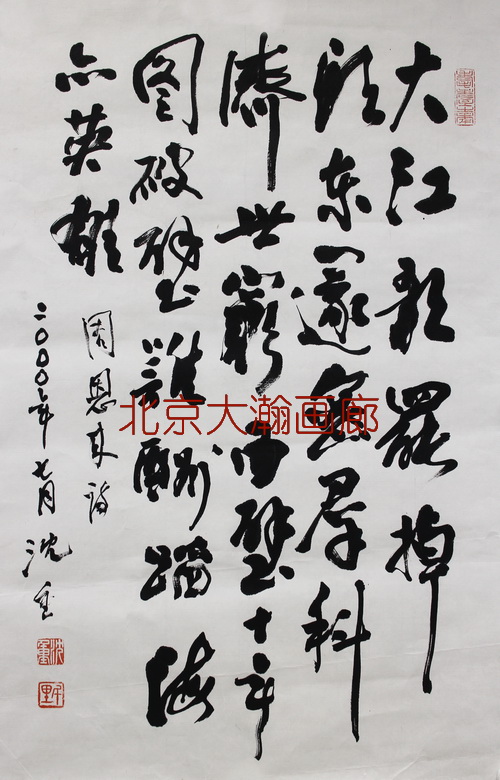 大江歌罷掉
頭東邃密羣科
濟世窮面壁十年
图破壁難酬蹈海
亦英雄
周恩来詩
二〇〇〇年七月沈重
北京大瀚画廊